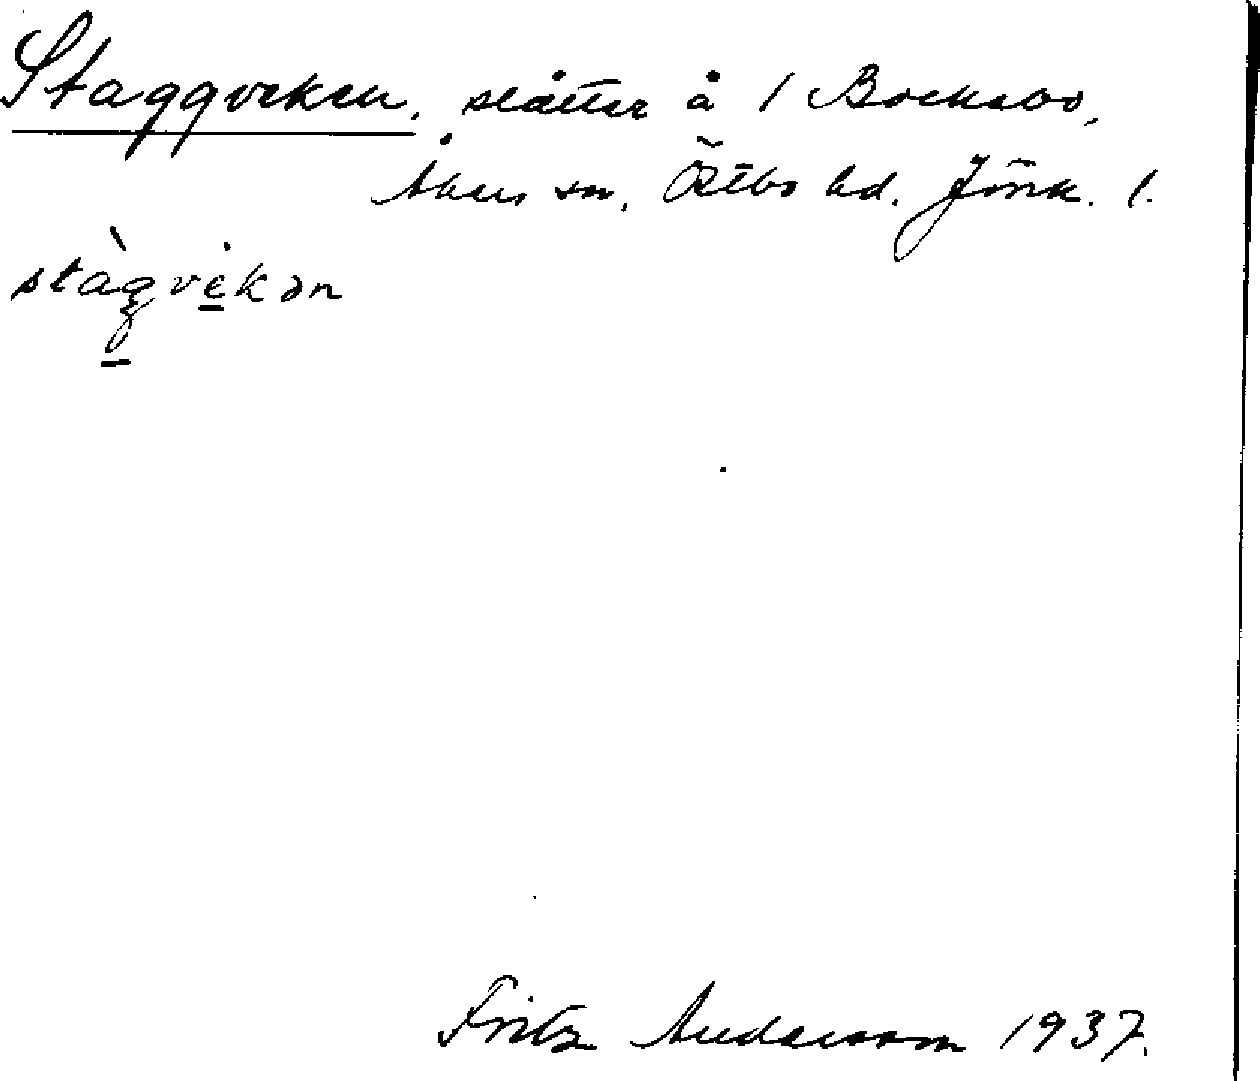 Staggveken, slåtter å 1 Bocksbo,
Åkers sn, Östbo hd. Jönk. l.
stàgvekən
Fritz Andersson 1937.